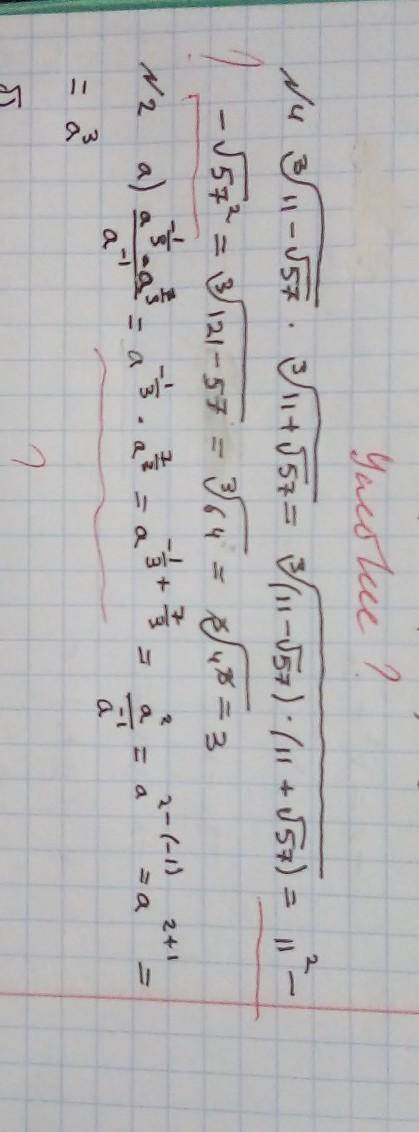 Условие ?
№4 ∛(11-√57) · ∛(11+√57) = ∛((11-√57)·(11+√57)) = 11² -
? -√57² = ∛(121-57) = ∛64 = ∛4³ = 3
№2 а) (a^(-1/3) · a^(7/3))/a^(-1) = a^(-1/3) · a^(7/3) = a^(-1/3 + 7/3) = a²/a^(-1) = a^(2-(-1)) = a^(2+1) =
= a³
?